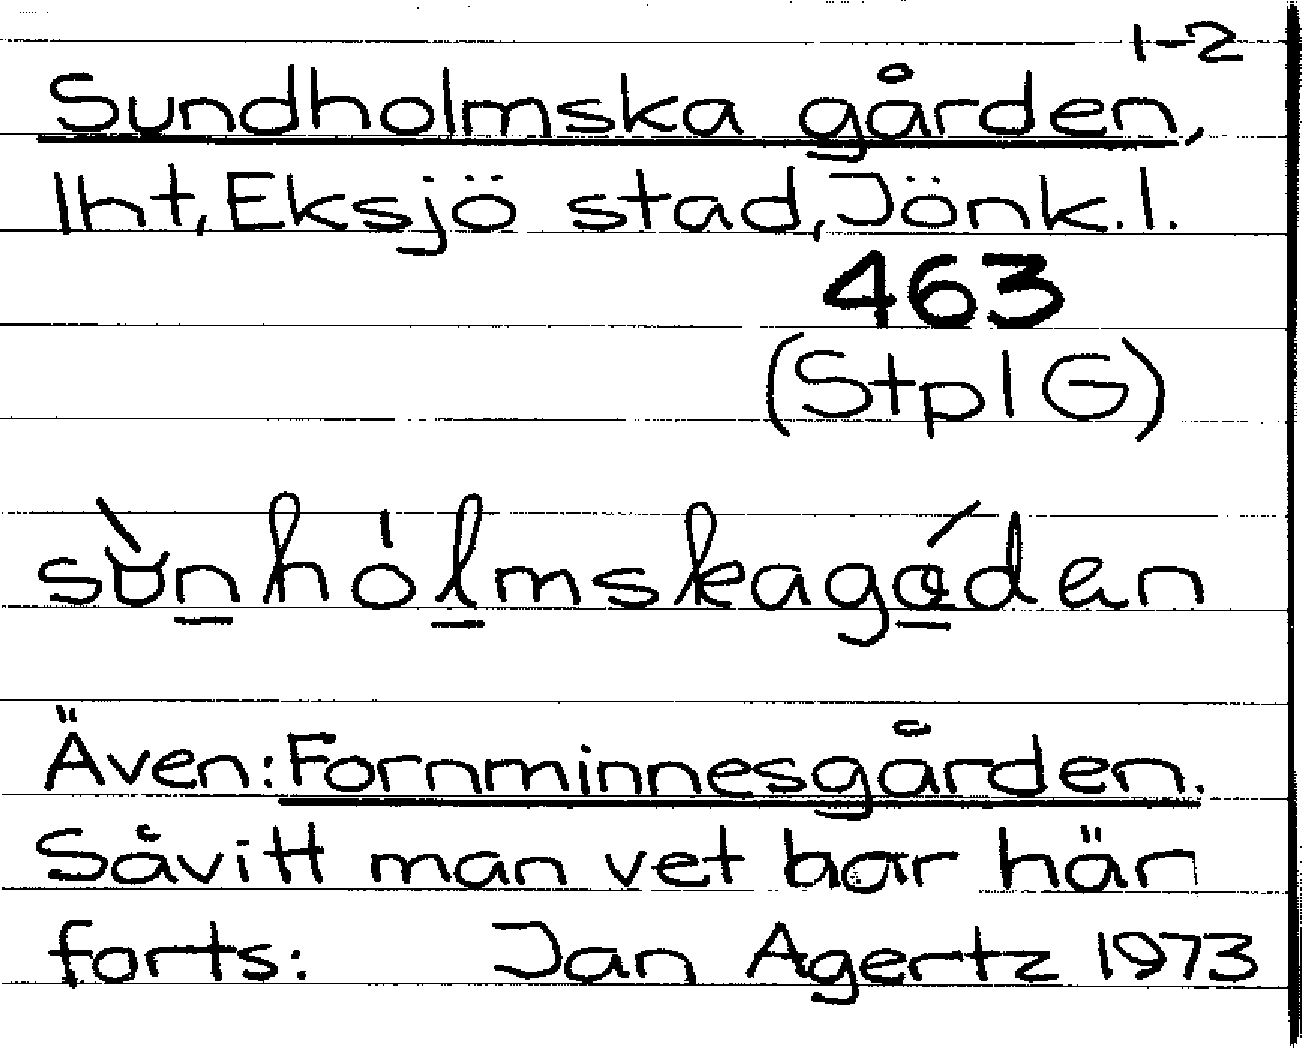 1-2
Sundholmska gården,
Iht, Eksjö stad, Jönk.l.
463
(Stpl G)
sùnhòlmskagɑ́dən
Även: Fornminnesgården.
Såvitt man vet bor här
forts: Jan Agertz 1973